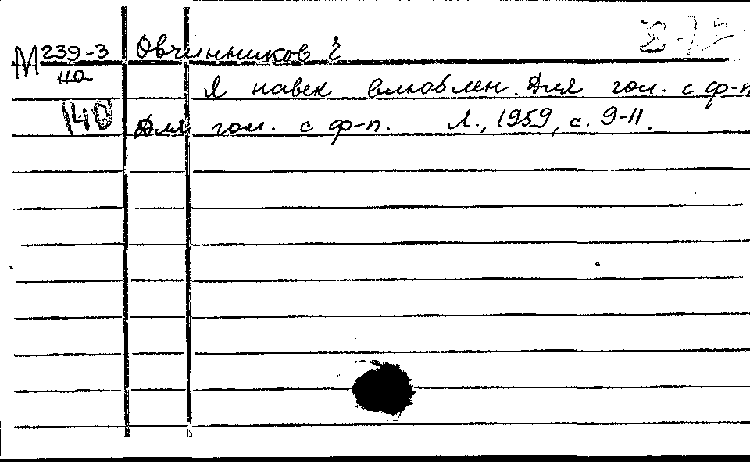 М 239-3 Овчинников Е
на Я навек влюблен. Для гол. с ф-п
140 Для гол. с ф-п. Л., 1959, с. 9-11.